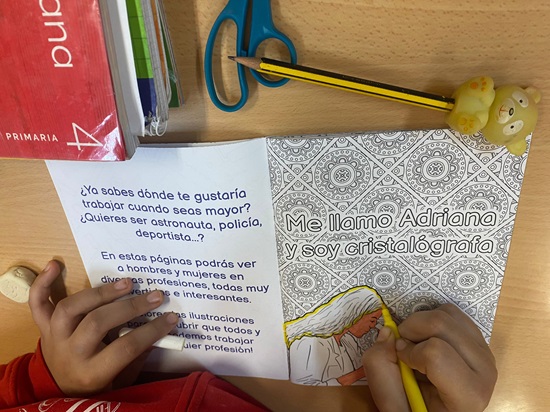 ana
PRIMARIA
4
¿Ya sabes dónde te gustaría
trabajar cuando seas mayor?
¿Quieres ser astronauta, policía,
deportista...?
En estas páginas podrás ver
a hombres y mujeres en
profesiones, todas muy
e interesantes.
ilustraciones
que todos y
trabajar
profesión!
Me llamo Adriana
y soy cristalógrafa